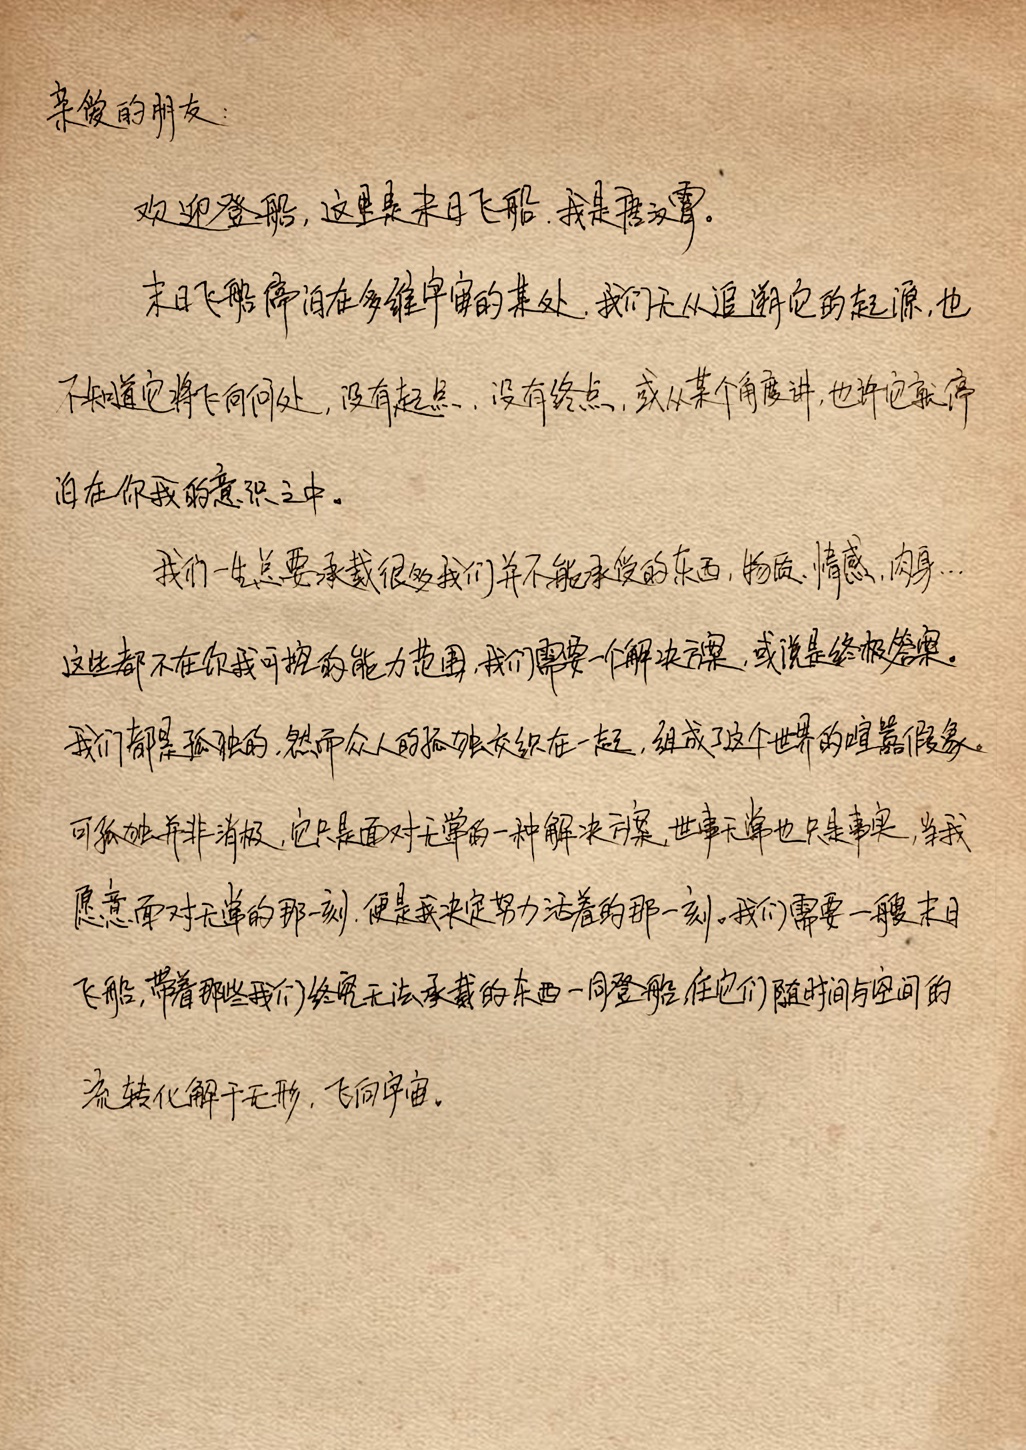 亲爱的朋友：
欢迎登船，这里是末日飞船，我是唐汉霄。
末日飞船停泊在多维宇宙的某处，我们无从追溯它的起源，也
不知道它将飞向何处，没有起点、没有终点，或从某个角度讲，也许它就停
泊在你我的意识之中。
我们一生总要承载很多我们并不能承受的东西，物质、情感、肉身…
这些都不在你我可控的能力范围，我们需要一个解决方案，或说是终极答案。
我们都是孤独的，然而众人的孤独交织在一起，组成了这个世界的喧嚣假象。
可孤独并非消极，它只是面对无常的一种解决方案，世事无常也只是事实，当我
愿意面对无常的那一刻，便是我决定努力活着的那一刻。我们需要一艘末日
飞船，带着那些我们终究无法承载的东西一同登船，任它们随时间与空间的
流转化解于无形，飞向宇宙。